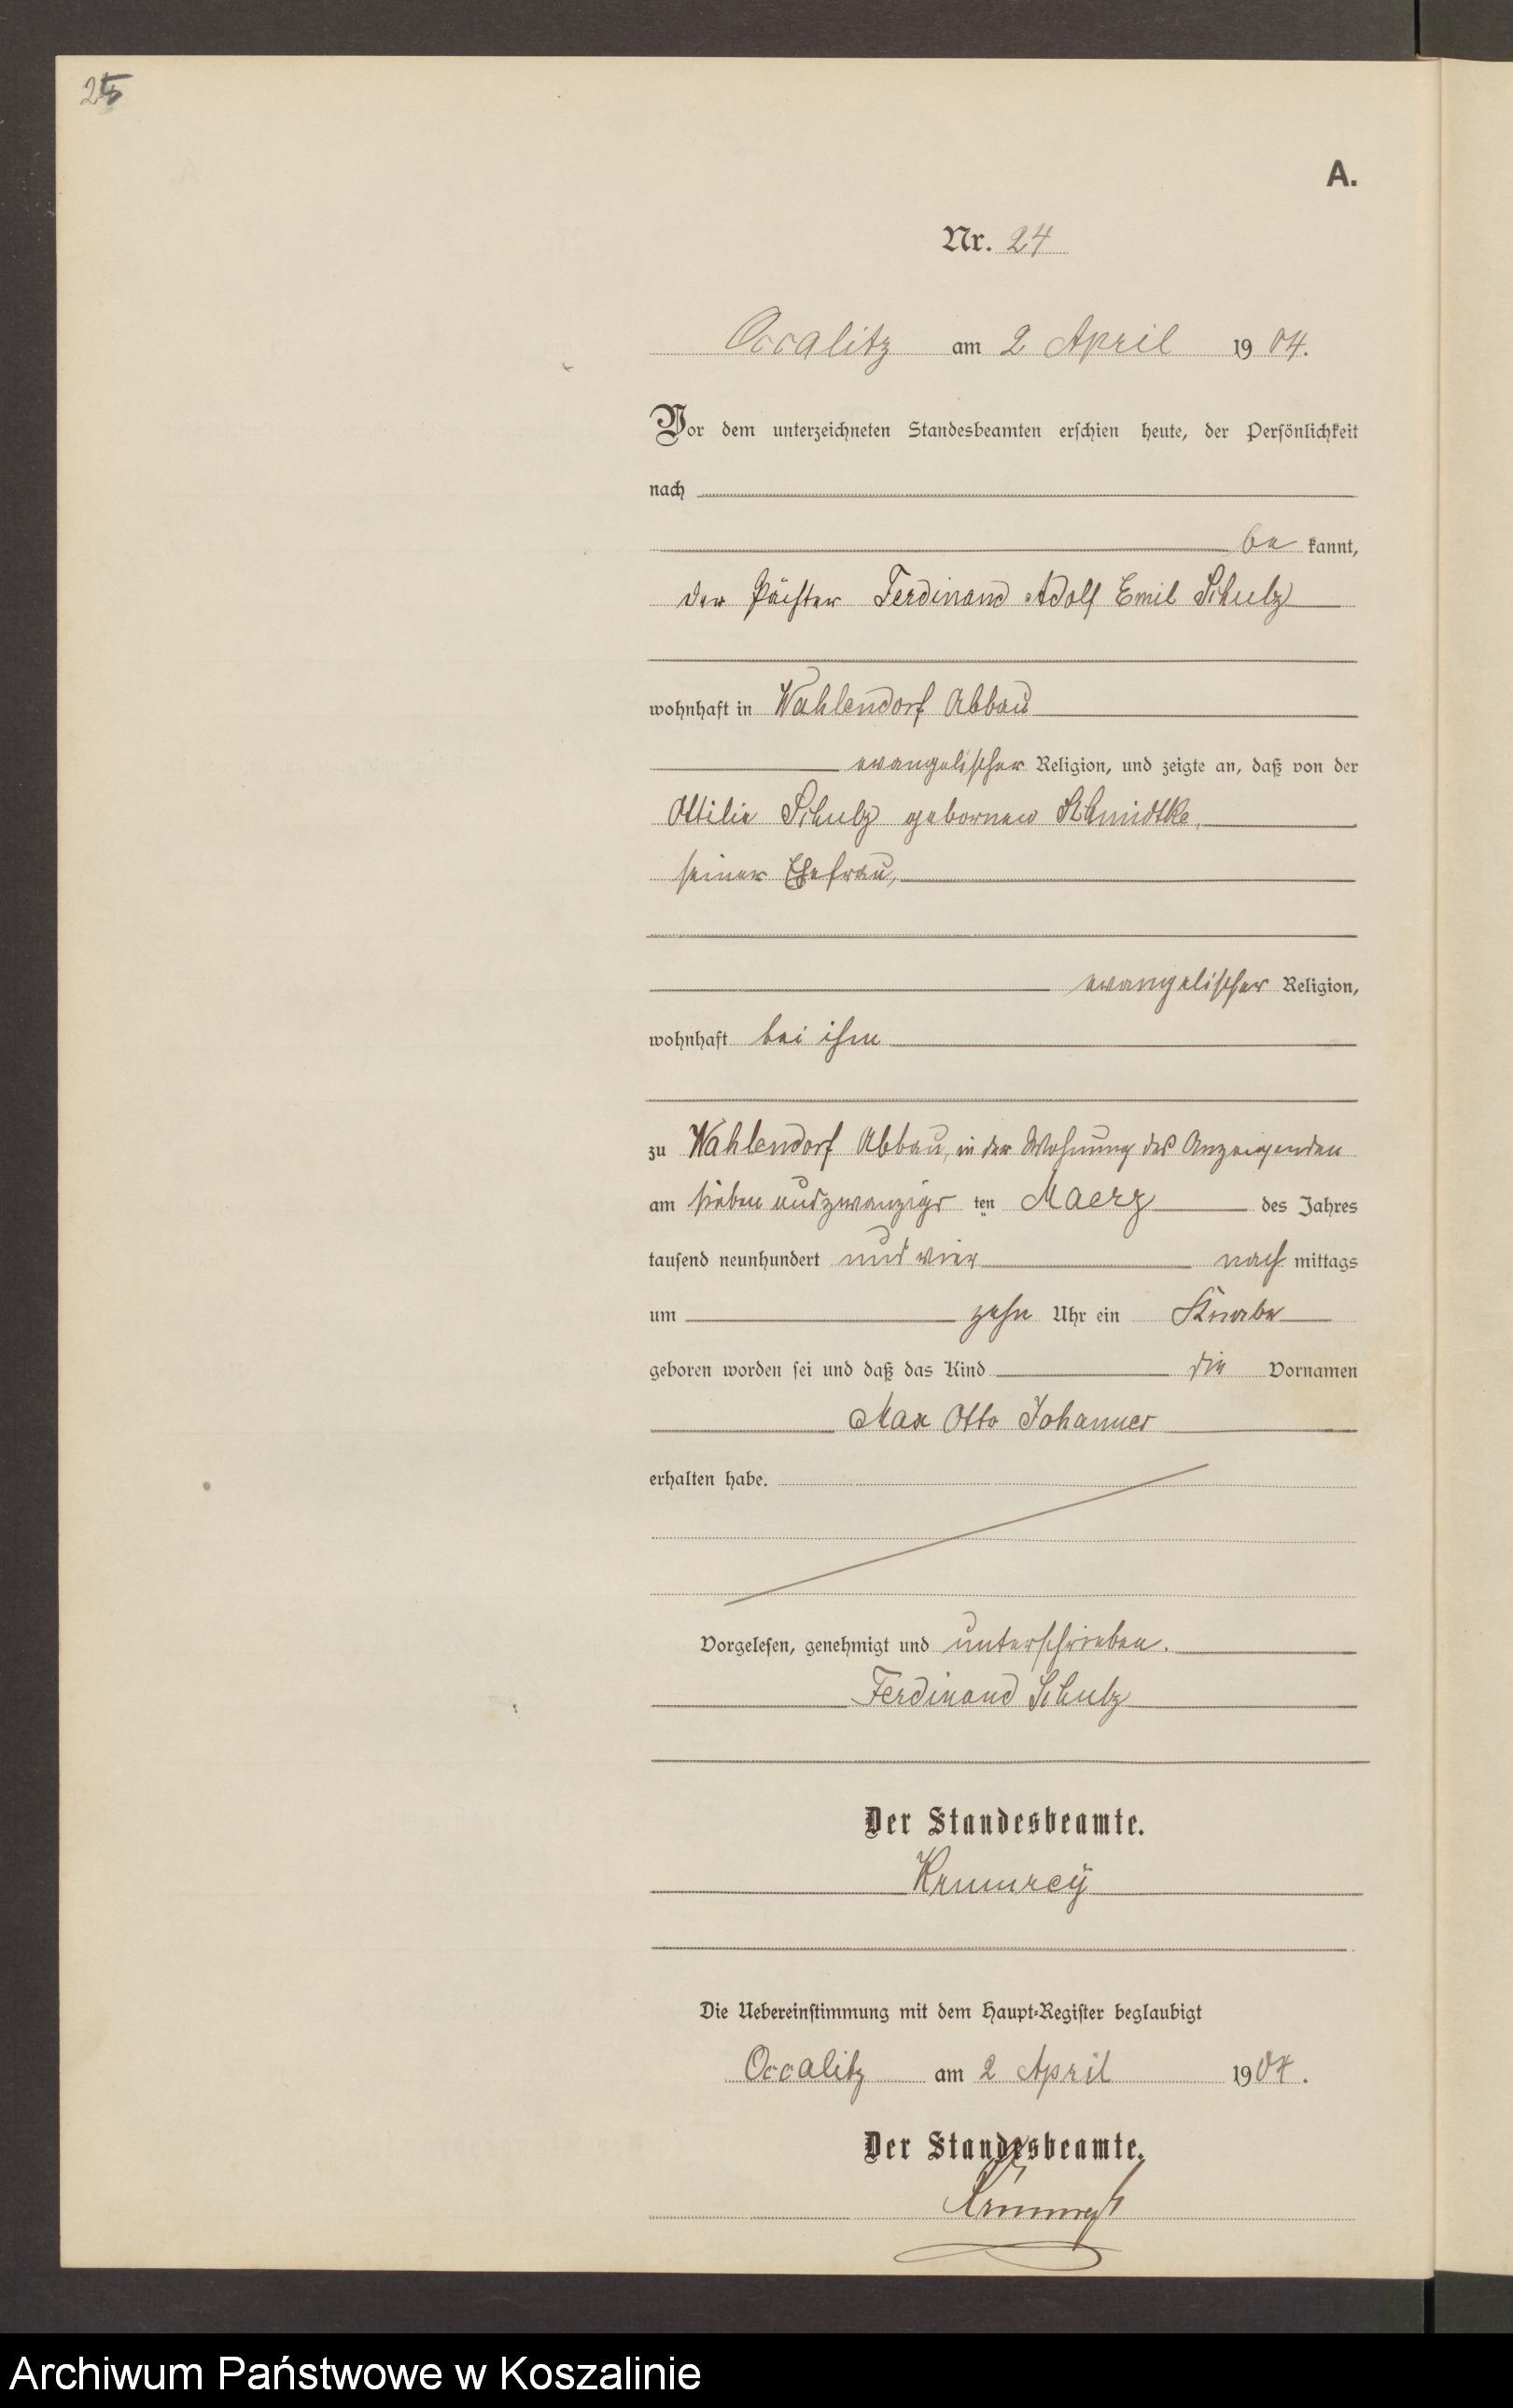 25
A.
Nr. 24
Occalitz am 2 April 1904.
Vor dem unterzeichneten Standesbeamten erschien heute, der Persönlichkeit
nach
be kannt,
der Pächter Ferdinand Adolf Emil Schulz
wohnhaft in Wahlendorf Abbau
evangelischer Religion, und zeigte an, daß von der
Ottilie Schulz gebornen Schmidtke,
seiner Ehefrau,
evangelischer Religion,
wohnhaft bei ihm
zu Wahlendorf Abbau, in der Wohnung des Anzeigenden
am sieben und zwanzigs ten Maerz des Jahres
tausend neunhundert und vier nach mittags
um zehn Uhr ein Knabe
geboren worden sei und daß das Kind die Vornamen
Max Otto Johannes
erhalten habe.
Vorgelesen, genehmigt und unterschrieben.
Ferdinand Schulz
Der Standesbeamte.
Krumrey
Die Uebereinstimmung mit dem Haupt-Register beglaubigt
Occalitz am 2 April 1904.
Der Standesbeamte.
Krumrey
Archiwum Państwowe w Koszalinie